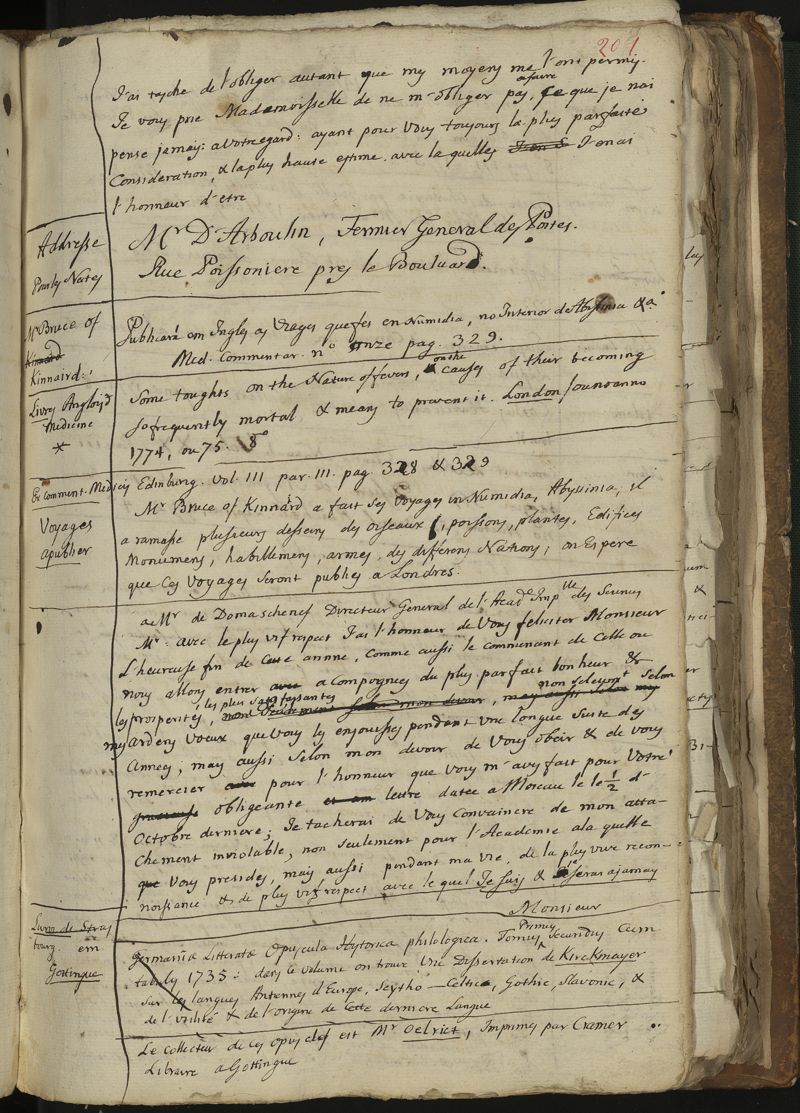 201
J'ai tache de l'obliger autant que my moyens me l'ont permis.
Je vous prie Mademoisselle de ne m'obliger pas, a faire ce que je n'ai
pense jamays avotre egard: ayant pour Vous toujours la plus parfaite
Consideration, & la plus hause estime. avec la quelles J'en ai
l'honneur d'etre
Addresse
Pour les Notes
Mr D'Arboulin, Fermier General des Postes.
Rue Poissoniere pres le Bouluard.
Mr Bruce of
Kinaird
Kinnaird:
Publicará em Ingles as Viages que fes en Numidia, no Interior de Abysinia &a
Med. Commentar. no onze pag. 329.
Livres Angloys d
Medicine
*
Some toughts on the Nature of fevers, on the causes of their becoming
so frequently mortal & means to prevent it. London
1774, ou 75. 8o
Ex Comment. Medicis Edinburg. vol. III par. III. pag. 328 & 329
Voyages
a publier
Mr Bruce of Kinnard a fait ses Voyages in Numidia, Abyssinia, il
a ramasse plussieurs desseins des oiseaux, poissons, plantes, Edifices
Monumens, habillemens, armes, des differens Nations; on Espere
que Ces Voyages seront publies a Londres.
a Mr. de Domaschenef Directeur General de l'Acade Impble des Sciences
Mr. avec le plus vif respect J'ai l'honneur de Vous feliciter Monsieur
L'heureuse fin de Cette annne, Comme aussi le commencant de Celle ou
nous allons entrer avec a Compognes du plus parfait bonheur &
les prosperites, les plus satisfaisantes non seulement selon
mes ardens voeux que Vous les enjouisses pendant une longue suite des
Annees; mays aussi selon mon devoir de Vous obeir & de vous
remercier pour l'honneur que Vous m'aves fait pour Votre
gracieuse obligeante lettre datee a Moscau le 1/2 d'
Octobre derniere; Je tacherai de Vous Convaincre de mon atta-
chement inviolable, non seulement pour l'Academie a la quelle
que Vous presides, mays aussi pendant ma vie, de la plus vive recon-
noissance & de plus vif respect avec le quel Je suis & serai a jamays
Monsieur
Livro de Stras
bourg em
Gottingue
Germaniæ Litteratæ Opuscula Hystorica philologica. Tomus Primus Secundus Cum
tabulis 1735: dans le Volume on trouve Une Dissertation de Kirckmayer
sur les langues Antennes d'Europe, Scytho-Celtica, Gothic, Slavonic, &
de l'utilité & de l'origine de Cette derniere Langue
Le Collecteur de Ces Opuscles est Mr Oelrict, Imprimes par Cramer
Libraire a Gottingue